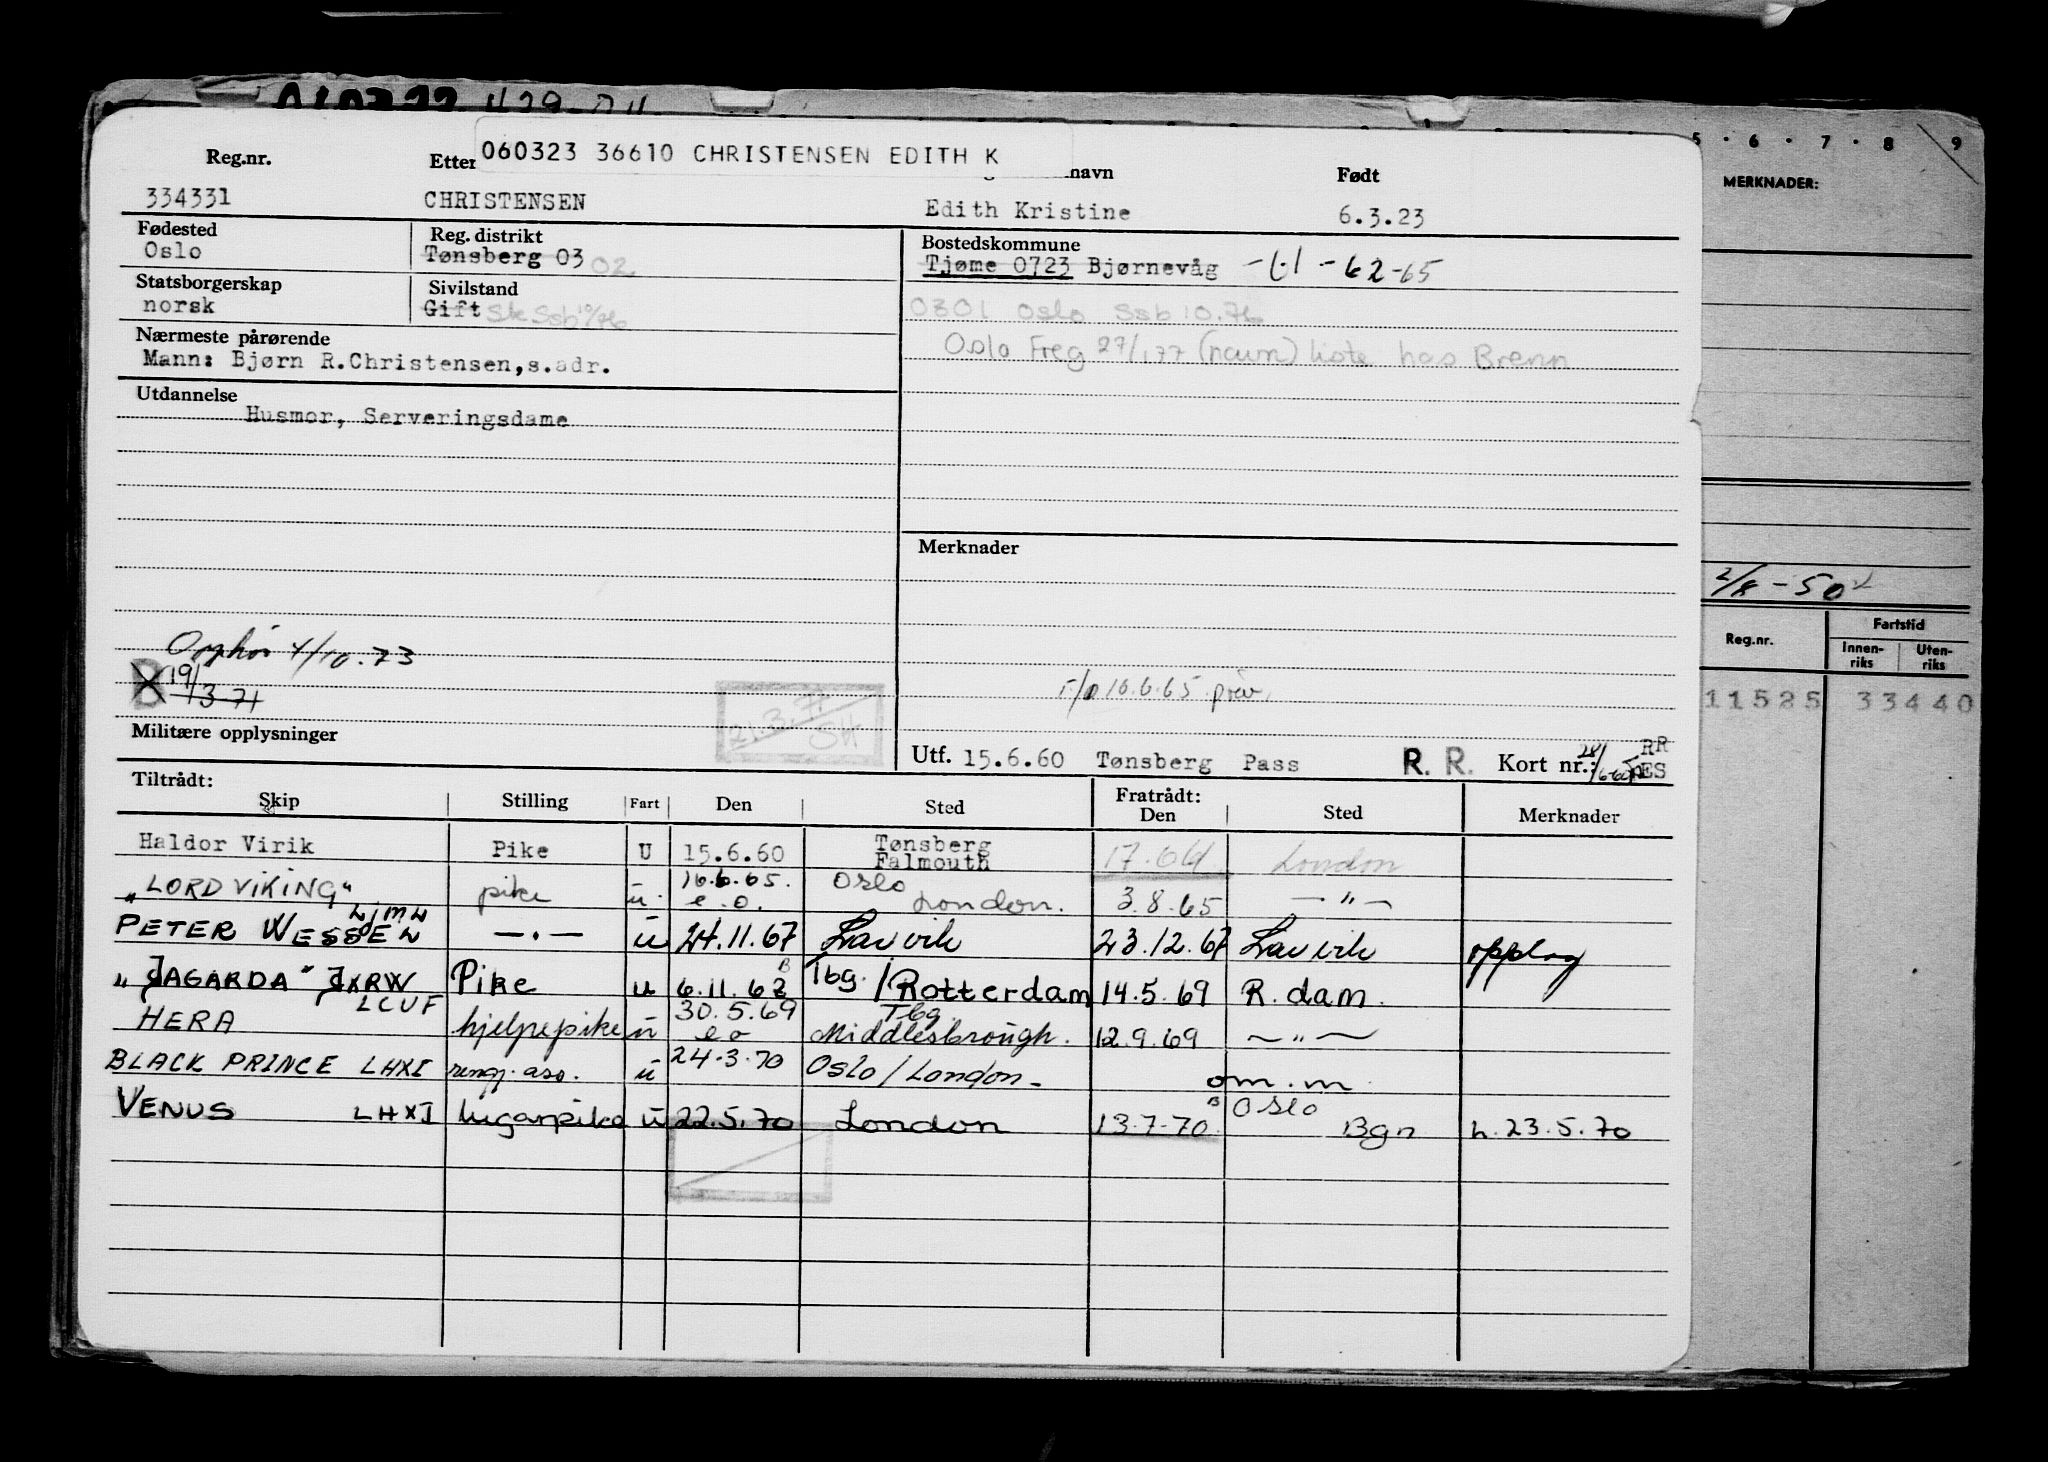 060323 36610 CHRISTENSEN EDITH K
Reg.nr. Etter navn Født
334331 CHRISTENSEN Edith Kristine 6.3.23
Fødested Reg. distrikt Bostedskommune
Oslo Tønsberg 03 02 Tjøme 0723 Bjørnevåg -62-65
Statsborgerskap Sivilstand
norsk Gift 0301 Oslo Ssb 10.76
Nærmeste pårørende
Mann: Bjørn R.Christensen,s.adr. Oslo Freg 27/1 77 (navn) liste hos Brenn
Utdannelse
Husmor, Serveringsdame
Merknader
Opphør 4/10.73
19/3 71
F/O 16.6.65 prøv.
21.3.71
SH
Militære opplysninger
Utf. 15.6.60 Tønsberg Pass R. R. Kort nr.: RR ES
Tiltrådt: Fratrådt:
Skip Stilling Fart Den Sted Den Sted Merknader
Haldor Virik Pike U 15.6.60 Tønsberg Falmouth 17.6.61 London
"LORD VIKING" pike u 16.6.65. e.o. Oslo London. 3.8.65 — " —
PETER WESSEL LJML — " — u 24.11.67 Larvik 23.12.67 Larvik opplag
"JAGARDA" JXRW Pike u 6.11.68 Tbg./Rotterdam 14.5.69 R.dam.
HERA LCUF hjelpepike u 30.5.69 eo Tbg. Middlesbrough. 12.9.69 — " —
BLACK PRINCE LHXI rengj. ass. u 24.3.70 Oslo/London- om.m.
VENUS LHXI lugarpike u 22.5.70 London 13.7.70 Oslo Bgn L.23.5.70
5 · 6 · 7 · 8 · 9
MERKNADER:
2/8-50
Reg.nr. Fartstid
Innenriks Utenriks
11525 33440